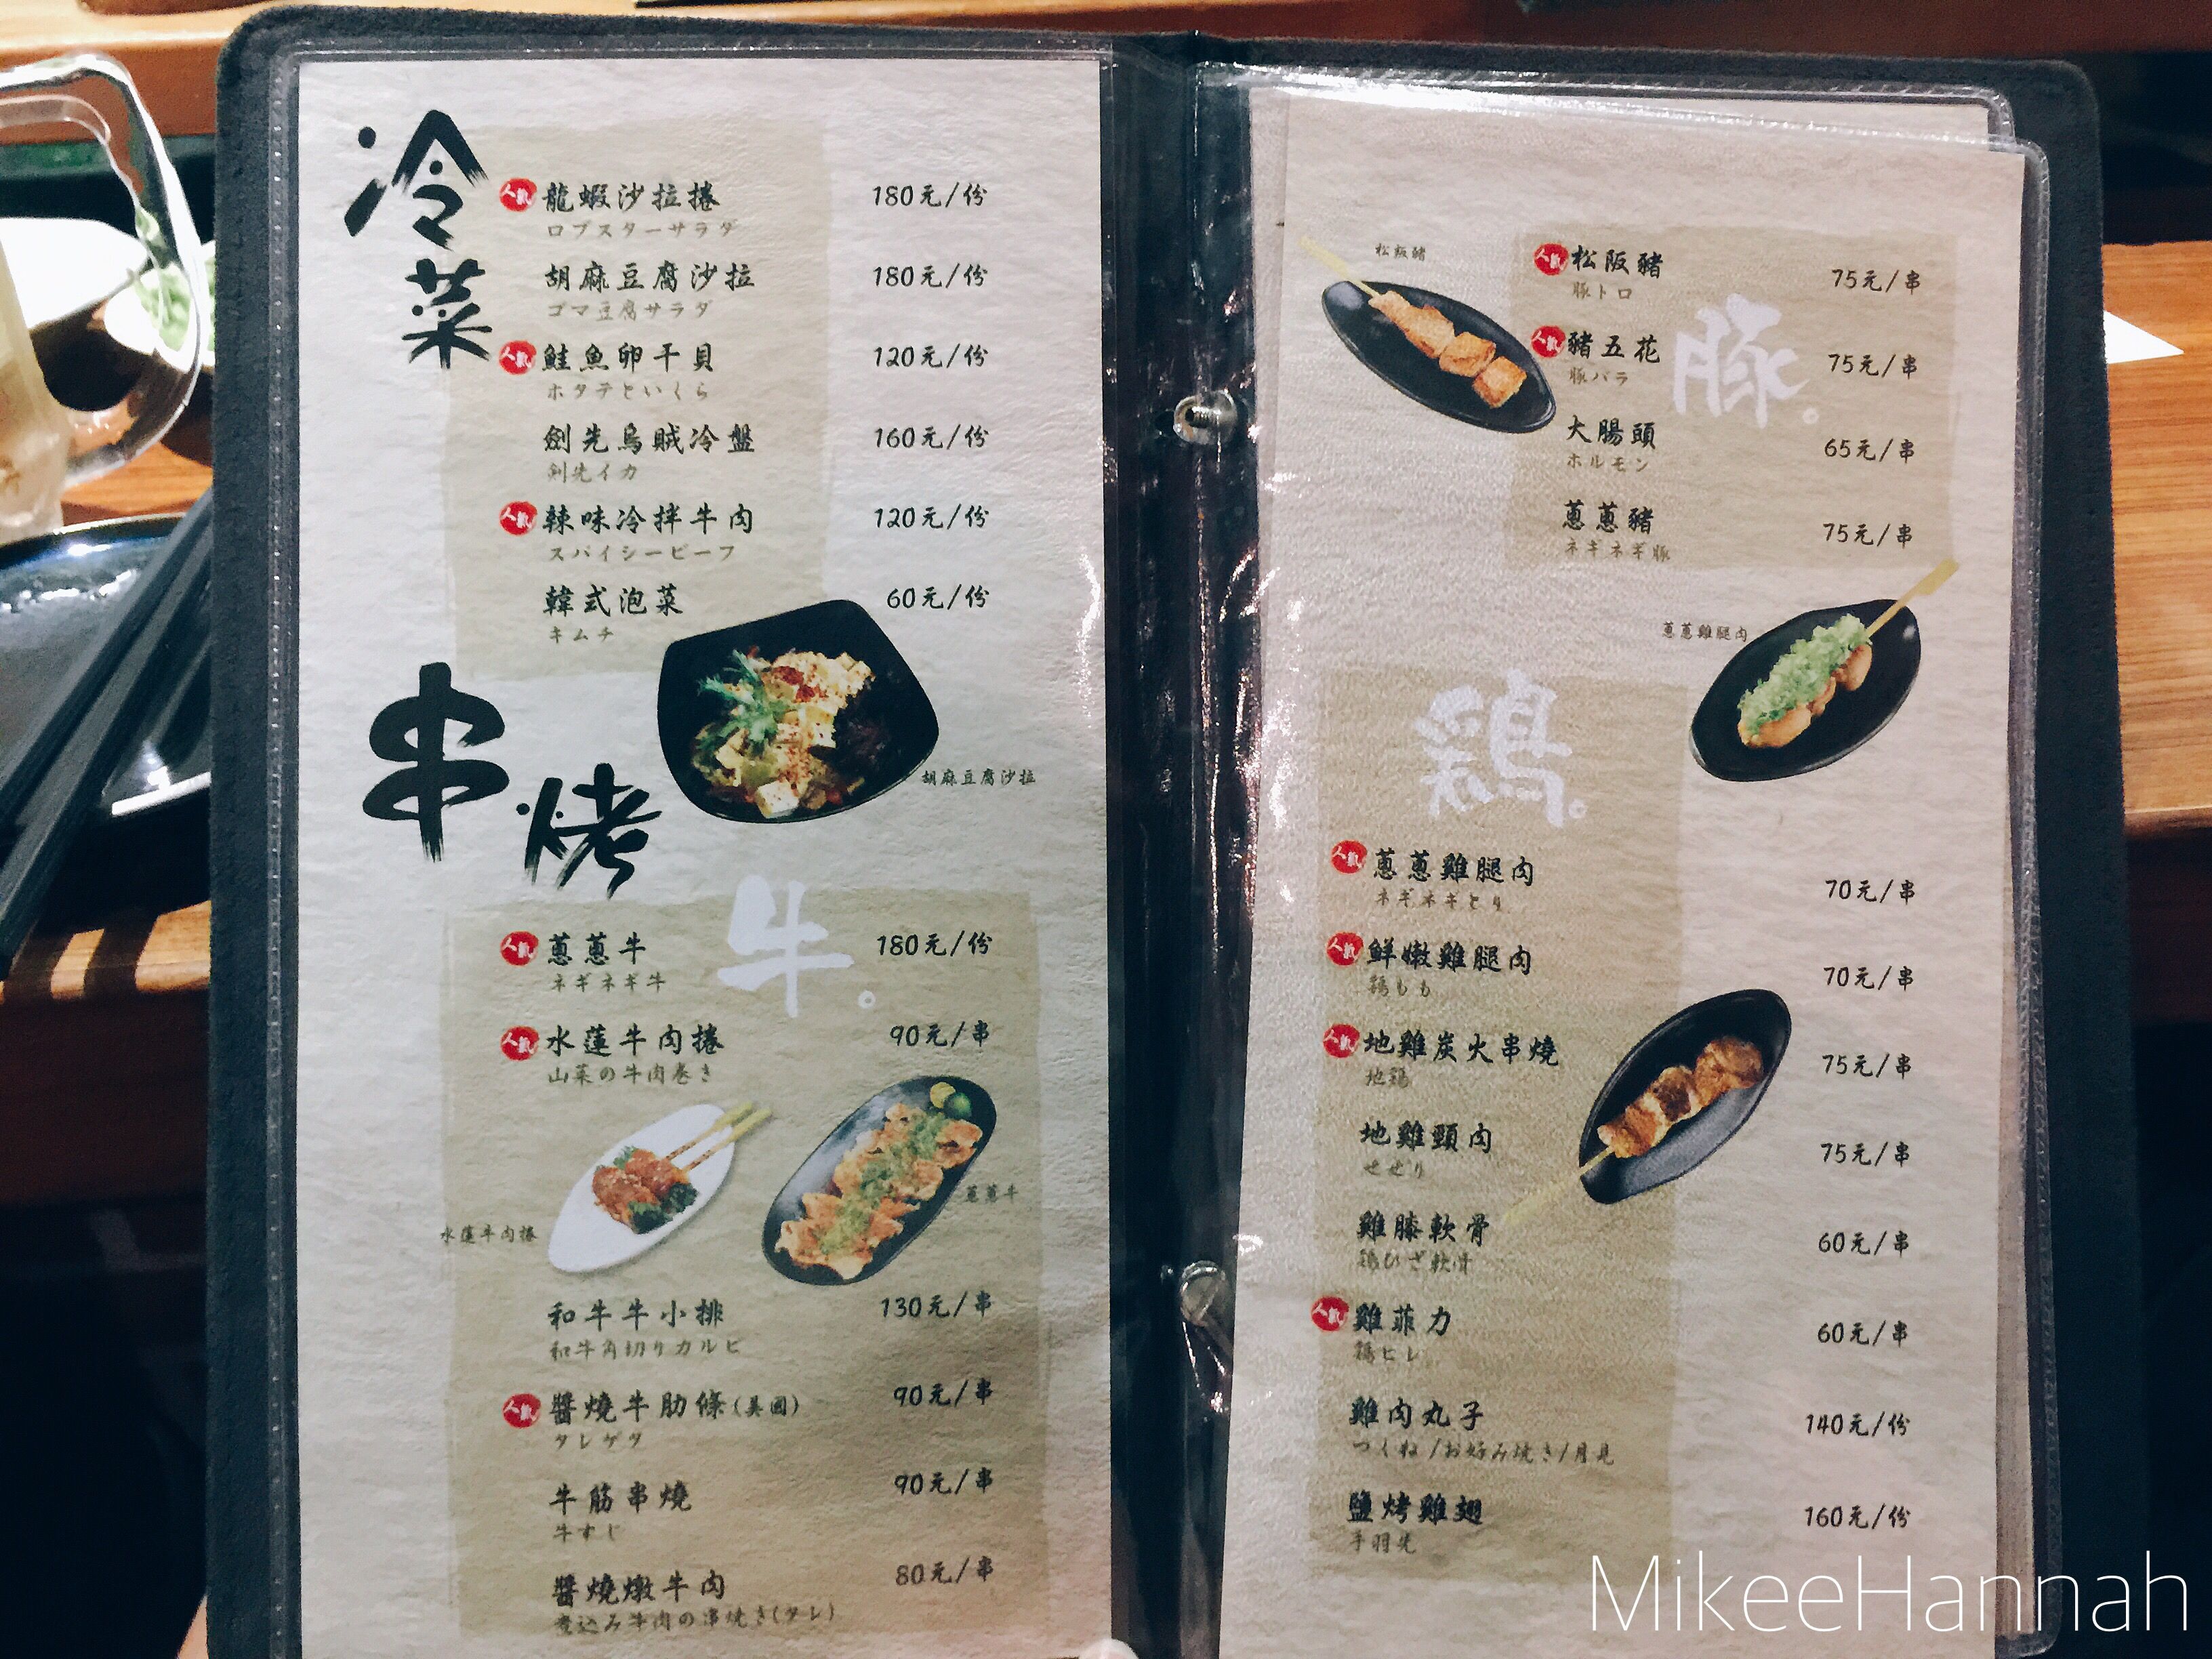 冷菜
人氣 龍蝦沙拉捲 180元/份
ロブスターサラダ
胡麻豆腐沙拉 180元/份
ゴマ豆腐サラダ
人氣 鮭魚卵干貝 120元/份
ホタテといくら
劍先烏賊冷盤 160元/份
剣先イカ
人氣 辣味冷拌牛肉 120元/份
スパイシービーフ
韓式泡菜 60元/份
キムチ
胡麻豆腐沙拉
串烤
牛。
人氣 蔥蔥牛 180元/份
ネギネギ牛
人氣 水蓮牛肉捲 90元/串
山菜の牛肉巻き
蔥蔥牛
水蓮牛肉捲
和牛牛小排 130元/串
和牛角切りカルビ
人氣 醬燒牛肋條(美國) 90元/串
タレゲタ
牛筋串燒 90元/串
牛すじ
醬燒燉牛肉 80元/串
煮込み牛肉の串焼き(タレ)
松阪豬
豚。
人氣 松阪豬 75元/串
豚トロ
人氣 豬五花 75元/串
豚バラ
大腸頭 65元/串
ホルモン
蔥蔥豬 75元/串
ネギネギ豚
蔥蔥雞腿肉
鶏。
人氣 蔥蔥雞腿肉 70元/串
ネギネギとり
人氣 鮮嫩雞腿肉 70元/串
鶏もも
人氣 地雞炭火串燒 75元/串
地鶏
地雞頸肉 75元/串
せせり
雞膝軟骨 60元/串
鶏ひざ軟骨
人氣 雞菲力 60元/串
鶏ヒレ
雞肉丸子 140元/份
つくね/お好み焼き/月見
鹽烤雞翅 160元/份
手羽先
MikeeHannah